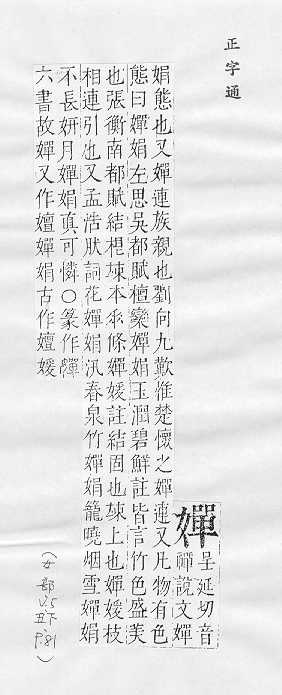 正字通
嬋
呈延切音
禪說文嬋
娟態也又嬋連族親也劉向九歎惟楚懷之嬋連又凡物有色
態曰嬋娟左思吳都賦檀欒嬋娟玉潤碧鮮註皆言竹色盛美
也張衡南都賦結根竦本垂條嬋媛註結固也竦上也嬋媛枝
相連引也又孟浩肰詞花嬋娟汎春泉竹嬋娟籠曉烟雪嬋娟
不長妍月嬋娟眞可憐○篆作
六書故嬋又作嬗嬋娟古作嬗媛
(女部 V.5 丑下 P.81)